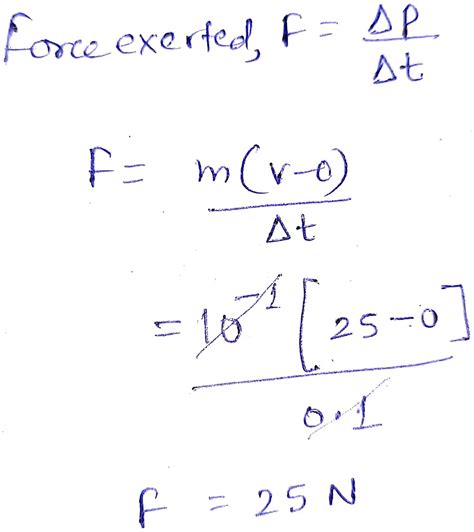 Force exerted, F = Δp / Δt
F = m(v-0) / Δt
= 10⁻¹ [25-0] / 0.1
F = 25 N